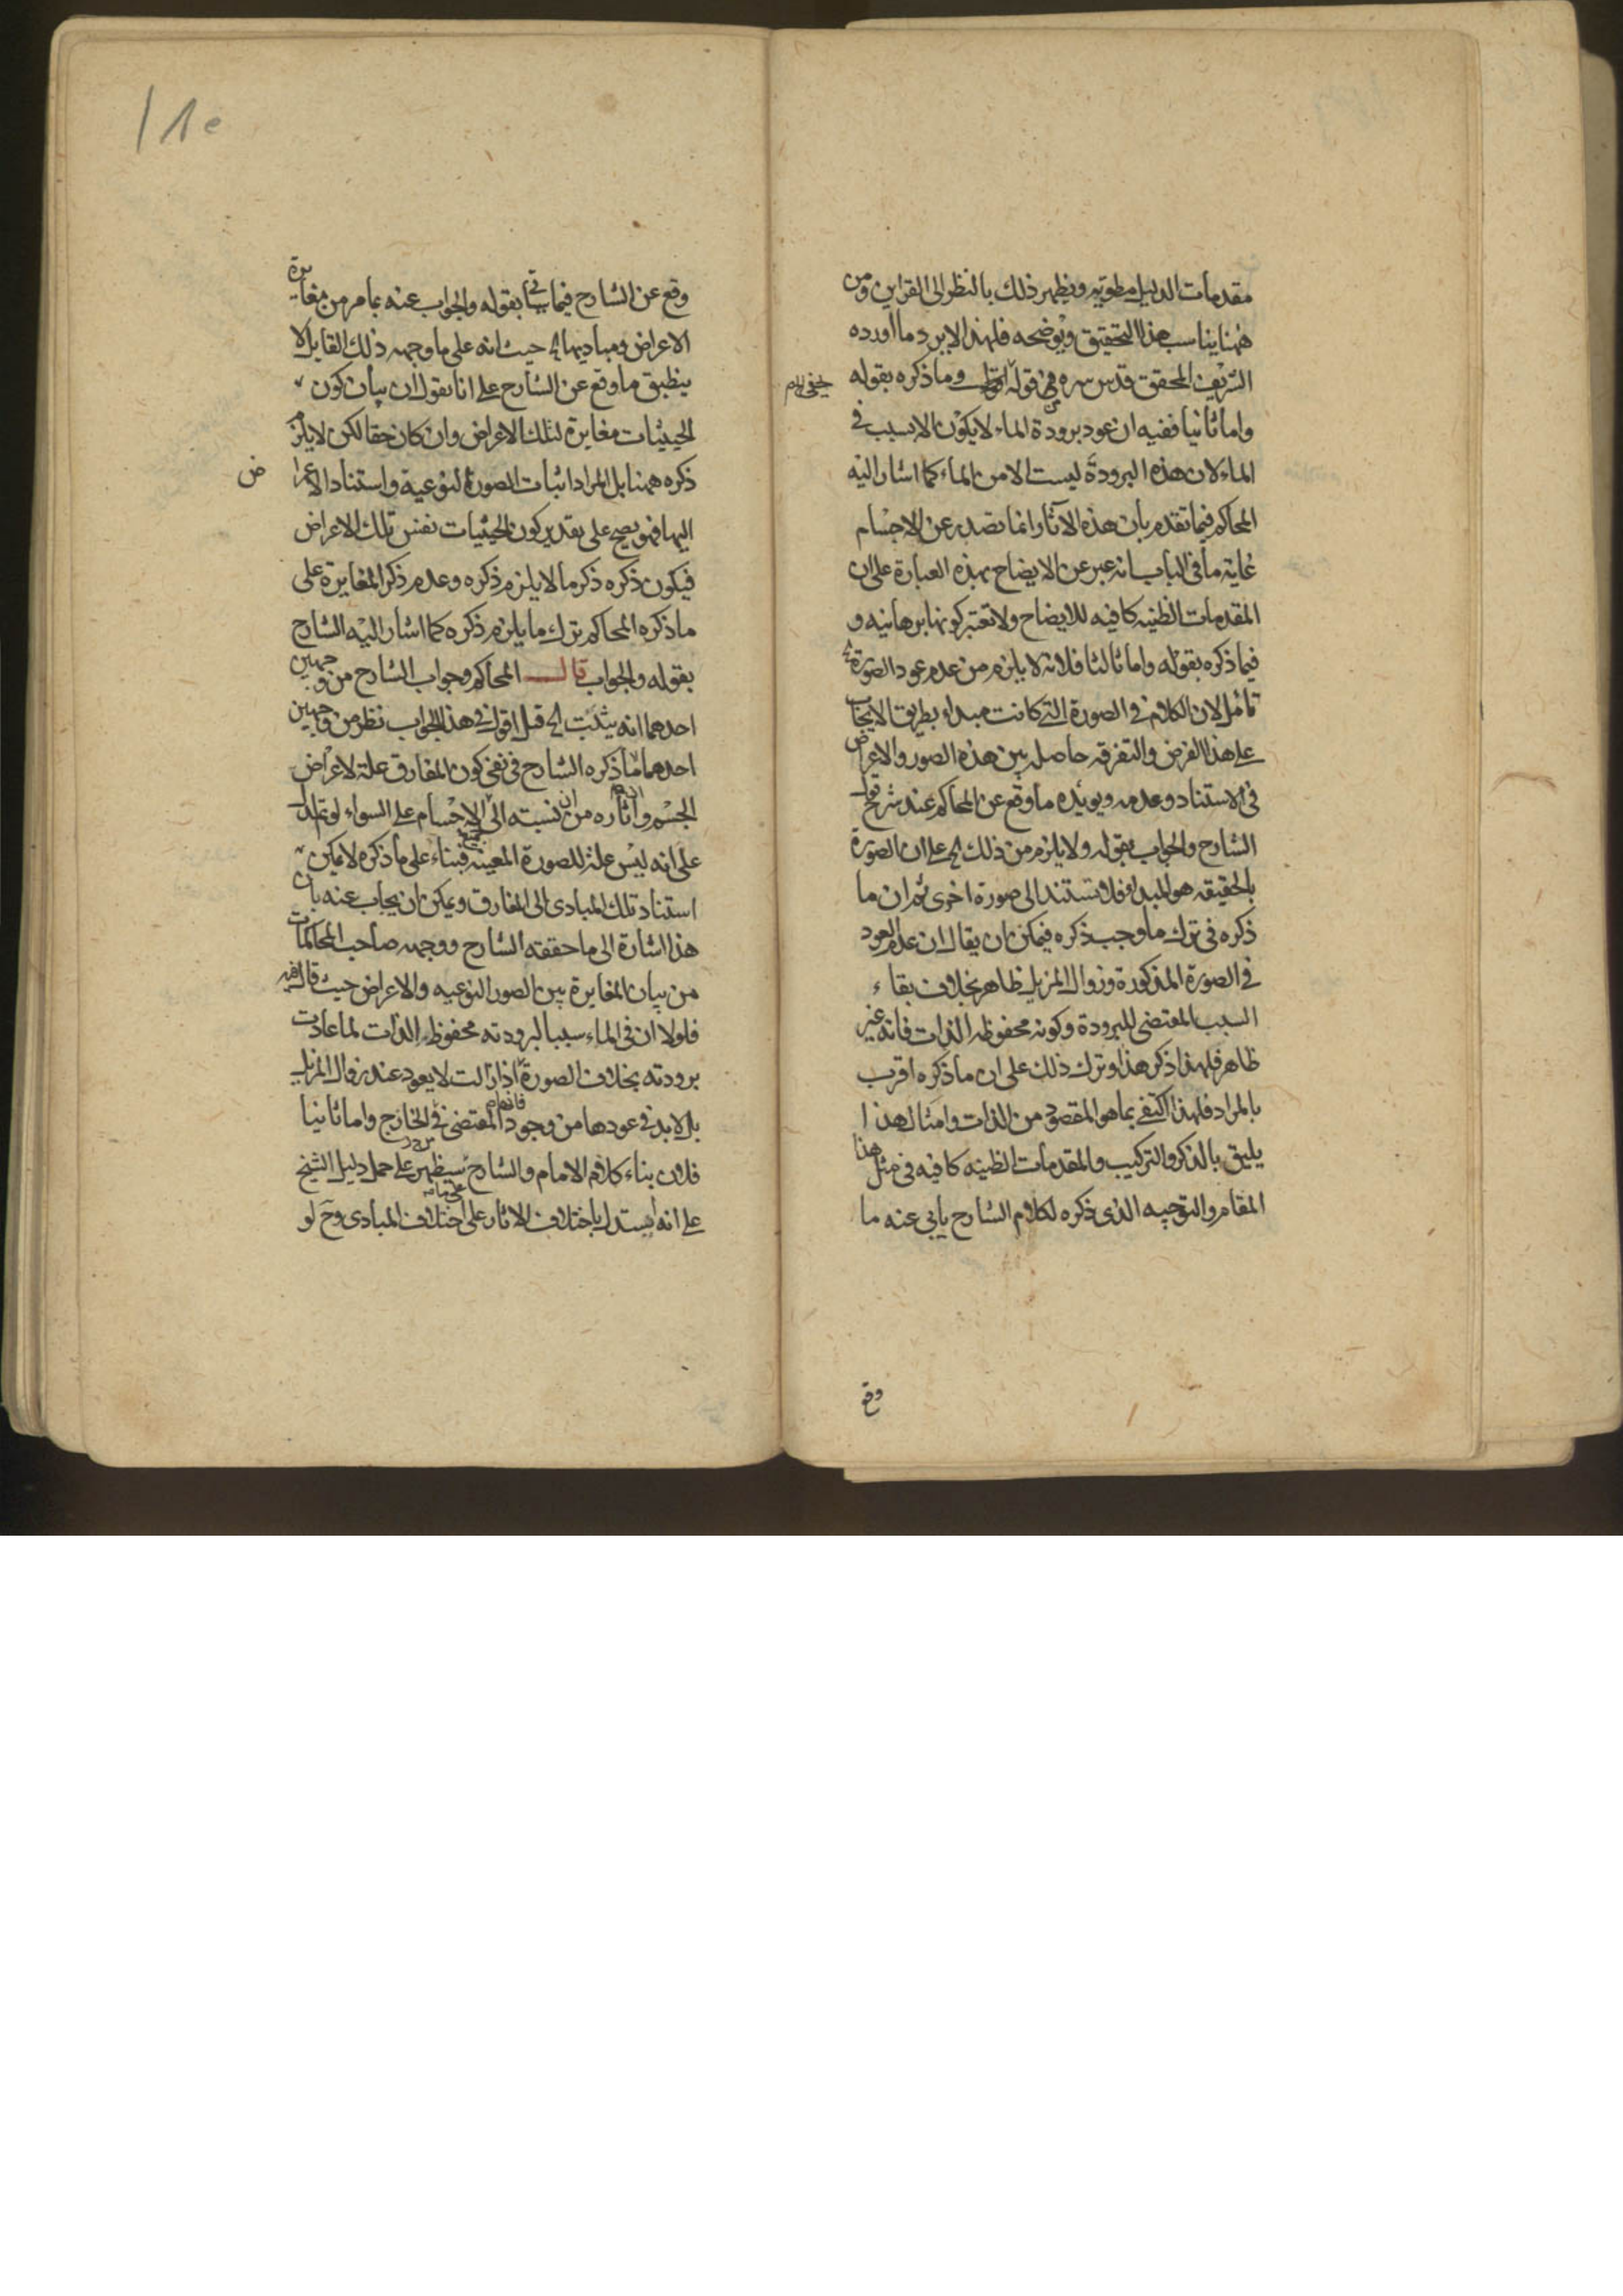 مقدمات الدليل مطوية ويظهر ذلك بالنظر الى القراين ومن
ههنا يناسب هذا التحقيق ويوضحه فلهذا لا يرد ما اورده
الشريف المحقق قدس سره في قوله وما ذكره بقوله
واما ثانيا ففيه ان عود برودة الماء لا يكون الا بسبب في
الماء لان هذه البرودة ليست الا من الماء كما اشار اليه
المحاكم فيما تقدم بان هذه الآثار انما تصدر عن الاجسام
غاية ما في الباب انه عبر عن الايضاح بهذه العبارة على ان
المقدمات الظنيه كافيه للايضاح ولا تعتبر كونها برهانيه و
فيما ذكره بقوله واما ثالثا فلانه لا يلزم من عدم عود الصورة الخ
تامل لان الكلام في الصورة التي كانت مبداء بطريق الايجاب
على هذا الفرض والتفرقه حاصله بين هذه الصور والاعراض
في الاستناد وعدمه ويويده ما وقع عن المحاكم عند شرح قول
الشارح والجواب بقوله ولا يلزم من ذلك الخ على ان الصورة
بالحقيقه هو المبداء فلا تستند الى صورة اخرى ثم ان ما
ذكره في ترك ما وجب ذكره فيمكن ان يقال ان عدم العود
في الصورة المذكورة وزوال المزيل ظاهر بخلاف بقاء
السبب المقتضى للبرودة وكونه محفوظه الذات فانه غير
ظاهر فلهذا ذكر هذا وترك ذلك على ان ما ذكره اقرب
بالمراد فلهذا اكتفى بما هو المقصود من الذات وامثال هذا
يليق بالذكر والتركيب والمقدمات الظنيه كافيه في مثل هذا
المقام والتوجيه الذى ذكره لكلام الشارح يابى عنه ما
وقع
وقع عن الشارح فيما ياتى بقوله والجواب عنه بما مر من مغايرة
الاعراض ومباديها الخ حيث انه على ما وجهه ذلك القايل لا
ينطبق ما وقع عن الشارح على انا نقول ان بيان كون
الحيثيات مغايرة لتلك الاعراض وان كان حقا لكن لا يلزم
ذكره ههنا بل المراد اثبات الصورة النوعية واستناد الاعراض
اليها فهو يصح على تقدير كون الحيثيات نفس تلك الاعراض
فيكون ذكره ذكر ما لا يلزم ذكره وعدم ذكر المغايرة على
ما ذكره المحاكم ترك ما يلزم ذكره كما اشار اليه الشارح
بقوله والجواب قال المحاكم وجواب الشارح من وجهين
احدهما انه يثبت الخ قيل اقول في هذا الجواب نظر من وجهين
احدهما ما ذكره الشارح في نفى كون المفارق علة لاعراض
الجسم وآثاره من ان نسبته الى جميع الاجسام على السواء لو تم لدل
على انه ليس علة للصورة المعينه فبناء على ما ذكره لا يمكن
استناد تلك المبادى الى المفارق ويمكن ان يجاب عنه بان
هذا اشارة الى ما حققه الشارح ووجهه صاحب المحاكمات
من بيان المغايرة بين الصور النوعيه والاعراض حيث قال
فلولا ان في الماء سببا لبرودته محفوظ الذات لما عادت
برودته بخلاف الصورة اذا زالت لا يعود عند زوال المزيل
بل لا بد في عودها من وجود المقتضى في الخارج واما ثانيا
فلان بناء كلام الامام والشارح سيظهر على حمل دليل الشيخ
على انه استدل باختلاف الاثار على اختلاف المبادى وح لو